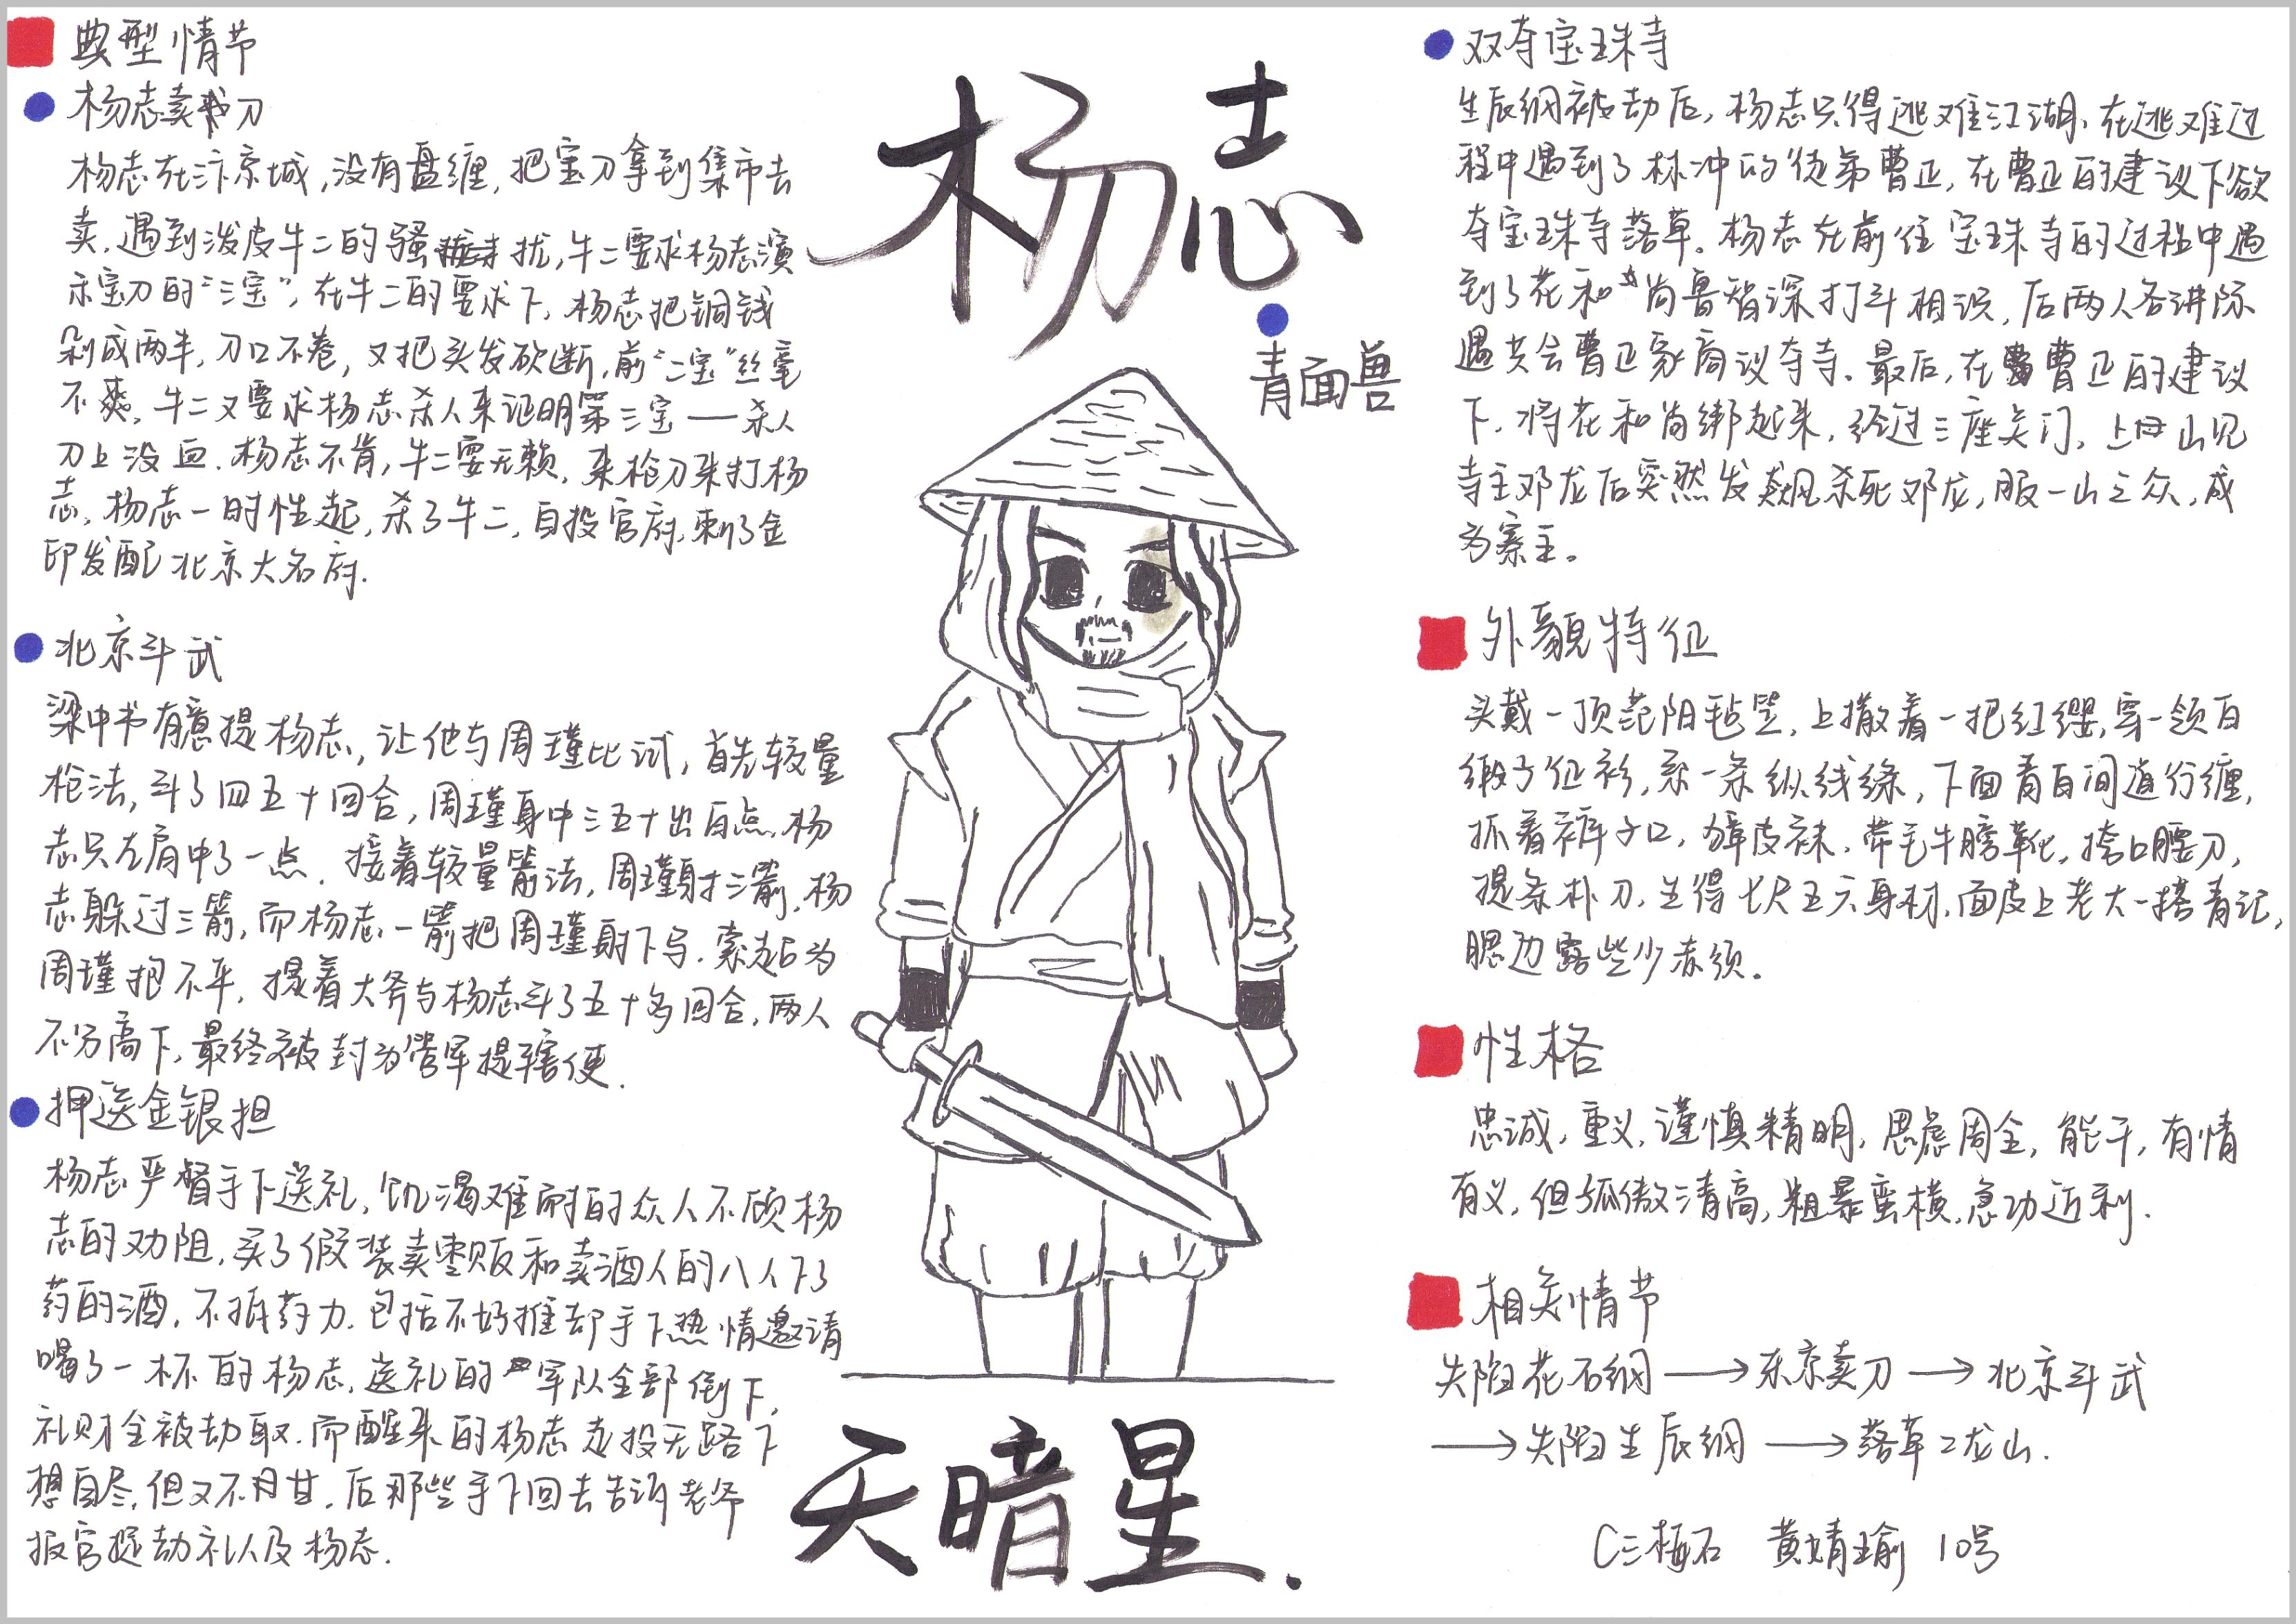 典型情节
杨志卖刀
杨志在汴京城,没有盘缠,把宝刀拿到集市去
卖,遇到泼皮牛二的骚扰,牛二要求杨志演
示宝刀的“三宝”,在牛二的要求下,杨志把铜钱
剁成两半,刀口不卷,又把头发砍断,前“二宝”丝毫
不爽,牛二又要求杨志杀人来证明第三宝——杀人
刀上没血.杨志不肯,牛二耍无赖,来枪刀来打杨
志,杨志一时性起,杀了牛二,自投官府,刺了金
印发配北京大名府.
北京斗武
梁中书有意提杨志,让他与周瑾比试,首先较量
枪法,斗了四五十回合,周瑾身中三五十出白点,杨
志只左肩中了一点.接着较量箭法,周瑾射三箭,杨
志躲过三箭,而杨志一箭把周瑾射下马.索超为
周瑾抱不平,提着大斧与杨志斗了五十多回合,两人
不分高下,最终被封为管军提辖使.
押送金银担
杨志严督手下送礼,饥渴难耐的众人不顾杨
志的劝阻,买了假装卖枣贩和卖酒人的八人下了
药的酒,不抵药力.包括不好推却手下热情邀请
喝了一杯的杨志,送礼的军队全部倒下,
礼财全被劫取.而醒来的杨志走投无路下
想自尽,但又不甘,后那些手下回去告诉老爷
报官捉劫礼人及杨志.
杨志
青面兽
天暗星.
双夺宝珠寺
生辰纲被劫后,杨志只得逃难江湖,在逃难过
程中遇到了林冲的徒弟曹正,在曹正的建议下欲
夺宝珠寺落草。杨志在前往宝珠寺的过程中遇
到了花和尚鲁智深打斗相识,后两人各讲际
遇共会曹正家商议夺寺。最后,在曹正的建议
下,将花和尚绑起来,经过三座关门,上山见
寺主邓龙后突然发飙杀死邓龙,服一山之众,成
为寨主。
外貌特征
头戴一顶范阳毡笠,上撒着一把红缨,穿一领白
缎子征衫,系一条纵线绦,下面青白间道行缠,
抓着裤子口,獐皮袜,带毛牛膀靴,挎口腰刀,
提条朴刀,生得七尺五六身材,面皮上老大一搭青记,
腮边露些少赤须。
性格
忠诚,重义,谨慎精明,思虑周全,能干,有情
有义,但孤傲清高,粗暴蛮横,急功近利.
相关情节
失陷花石纲→东京卖刀→北京斗武
→失陷生辰纲→落草二龙山.
C三梅石 黄婧瑜 10号